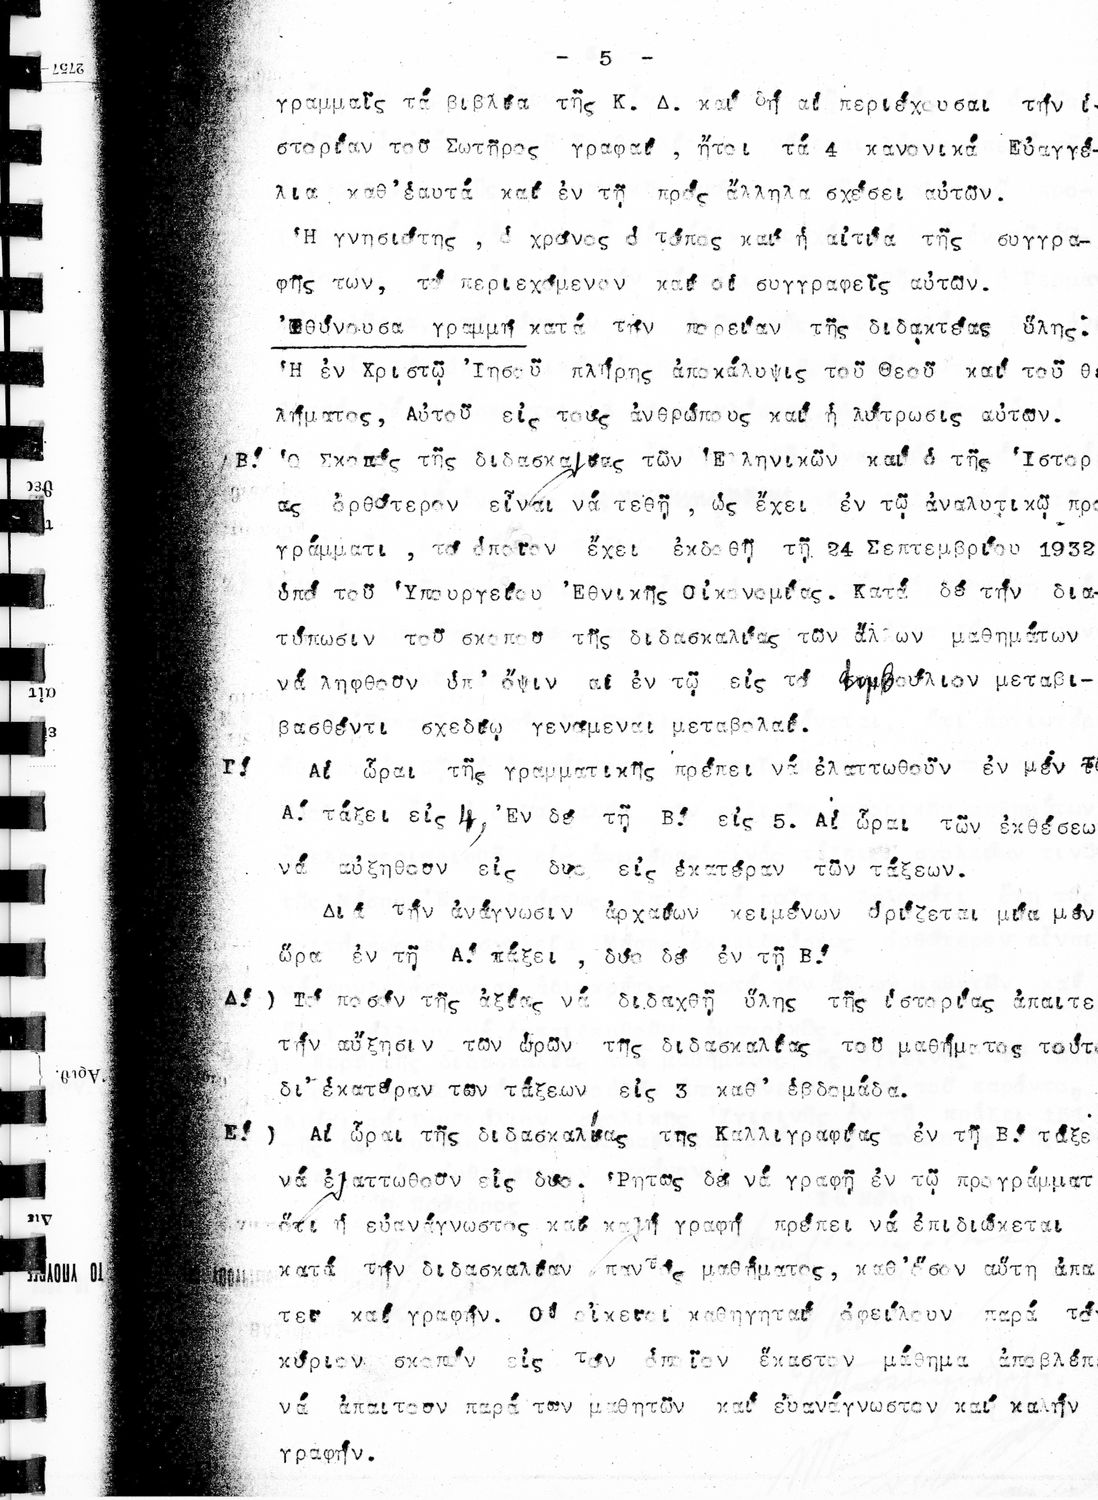 - 5 -
γραμμαῖς τά βιβλία τῆς Κ. Δ. καί δή αἱ περιέχουσαι τήν ἱ-
στορίαν τοῦ Σωτῆρος γραφαί , ἤτοι τά 4 κανονικά Εὐαγγέ-
λια καθ'ἑαυτά καί ἐν τῇ πρός ἄλληλα σχέσει αὐτῶν.
Ἡ γνησιότης , ὁ χρόνος ὁ τόπος καί ἡ αἰτία τῆς συγγρα-
φῆς των, τό περιεχόμενον καί οἱ συγγραφεῖς αὐτῶν.
Ἰθύνουσα γραμμή κατά τήν πορείαν τῆς διδακτέας ὕλης:
Ἡ ἐν Χριστῷ Ἰησοῦ πλήρης ἀποκάλυψις τοῦ Θεοῦ καί τοῦ θε
λήματος, Αὐτοῦ εἰς τούς ἀνθρώπους καί ἡ λύτρωσις αὐτῶν.
Β! Ὁ Σκοπός τῆς διδασκαλίας τῶν Ἑλληνικῶν καί ὁ τῆς Ἱστορ
ας ὀρθότερον εἶναι νά τεθῇ , ὡς ἔχει ἐν τῷ ἀναλυτικῷ προ
γράμματι , τό ὁποῖον ἔχει ἐκδοθῆ τῇ 24 Σεπτεμβρίου 1932
ὑπό τοῦ Ὑπουργείου Ἐθνικῆς Οἰκονομίας. Κατά δέ τήν δια-
τύπωσιν τοῦ σκοποῦ τῆς διδασκαλίας τῶν ἄλλων μαθημάτων
νά ληφθοῦν ὑπ' ὄψιν αἱ ἐν τῷ εἰς τό συμβούλιον μεταβι-
βασθέντι σχεδίῳ γενόμεναι μεταβολαί.
Γ! Αἱ ὧραι τῆς γραμματικῆς πρέπει νά ἐλαττωθοῦν ἐν μέν τῇ
Α! τάξει εἰς 4, Ἐν δέ τῇ Β! εἰς 5. Αἱ ὧραι τῶν ἐκθέσεω
νά αὐξηθοῦν εἰς δύο εἰς ἑκατέραν τῶν τάξεων.
Διά τήν ἀνάγνωσιν ἀρχαίων κειμένων ὁρίζεται μία μέν
ὥρα ἐν τῇ Α! τάξει , δύο δέ ἐν τῇ Β!
Δ! ) Τό ποσόν τῆς ἀξίας νά διδαχθῇ ὕλης τῆς ἱστορίας ἀπαιτε
τήν αὔξησιν τῶν ὡρῶν τῆς διδασκαλίας τοῦ μαθήματος τούτο
δι' ἑκατέραν τῶν τάξεων εἰς 3 καθ' ἑβδομάδα.
Ε! ) Αἱ ὧραι τῆς διδασκαλίας τῆς Καλλιγραφίας ἐν τῇ Β! τάξε
νά ἐλαττωθοῦν εἰς δύο. Ῥητῶς δέ νά γραφῇ ἐν τῷ προγράμματ
ὅτι ἡ εὐανάγνωστος καί καλή γραφή πρέπει νά ἐπιδιώκεται
κατά τήν διδασκαλίαν παντός μαθήματος, καθ'ὅσον αὕτη ἀπα
τεῖ καί γραφήν. Οἱ οἰκεῖοι καθηγηταί ὀφείλουν παρά τόν
κύριον σκοπόν εἰς τόν ὁποῖον ἕκαστον μάθημα ἀποβλέπε
νά ἀπαιτοῦν παρά τῶν μαθητῶν καί εὐανάγνωστον καί καλήν
γραφήν.
2757
Ἀριθ.